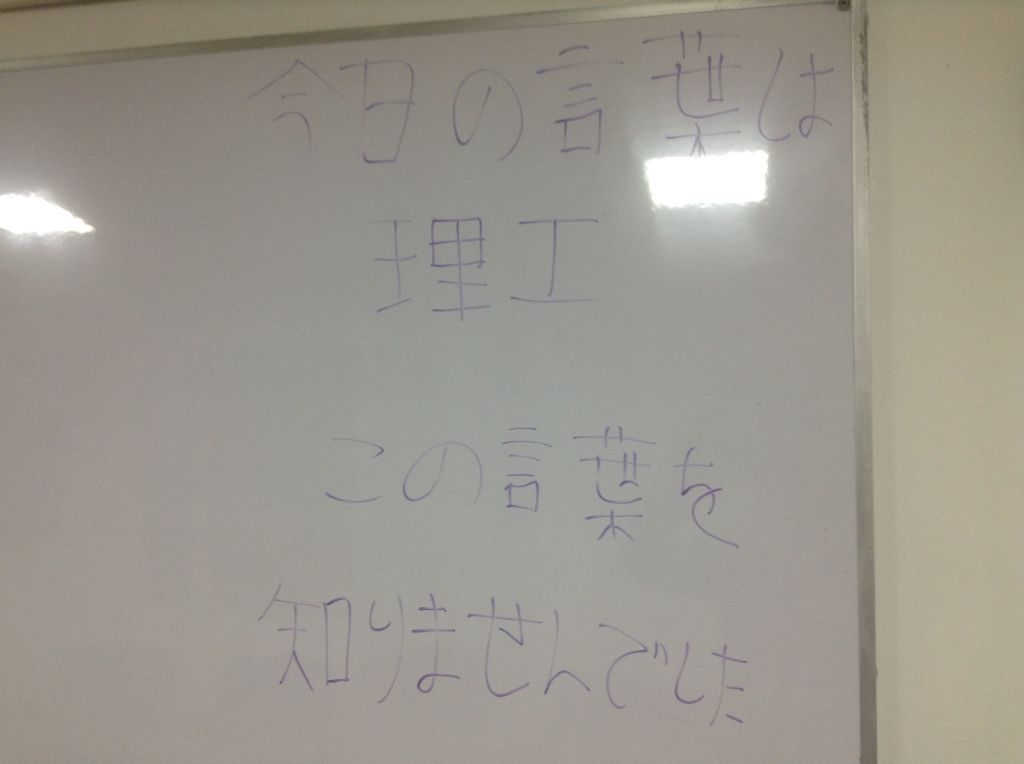 今日の言葉は
理工
この言葉を
知りませんでした